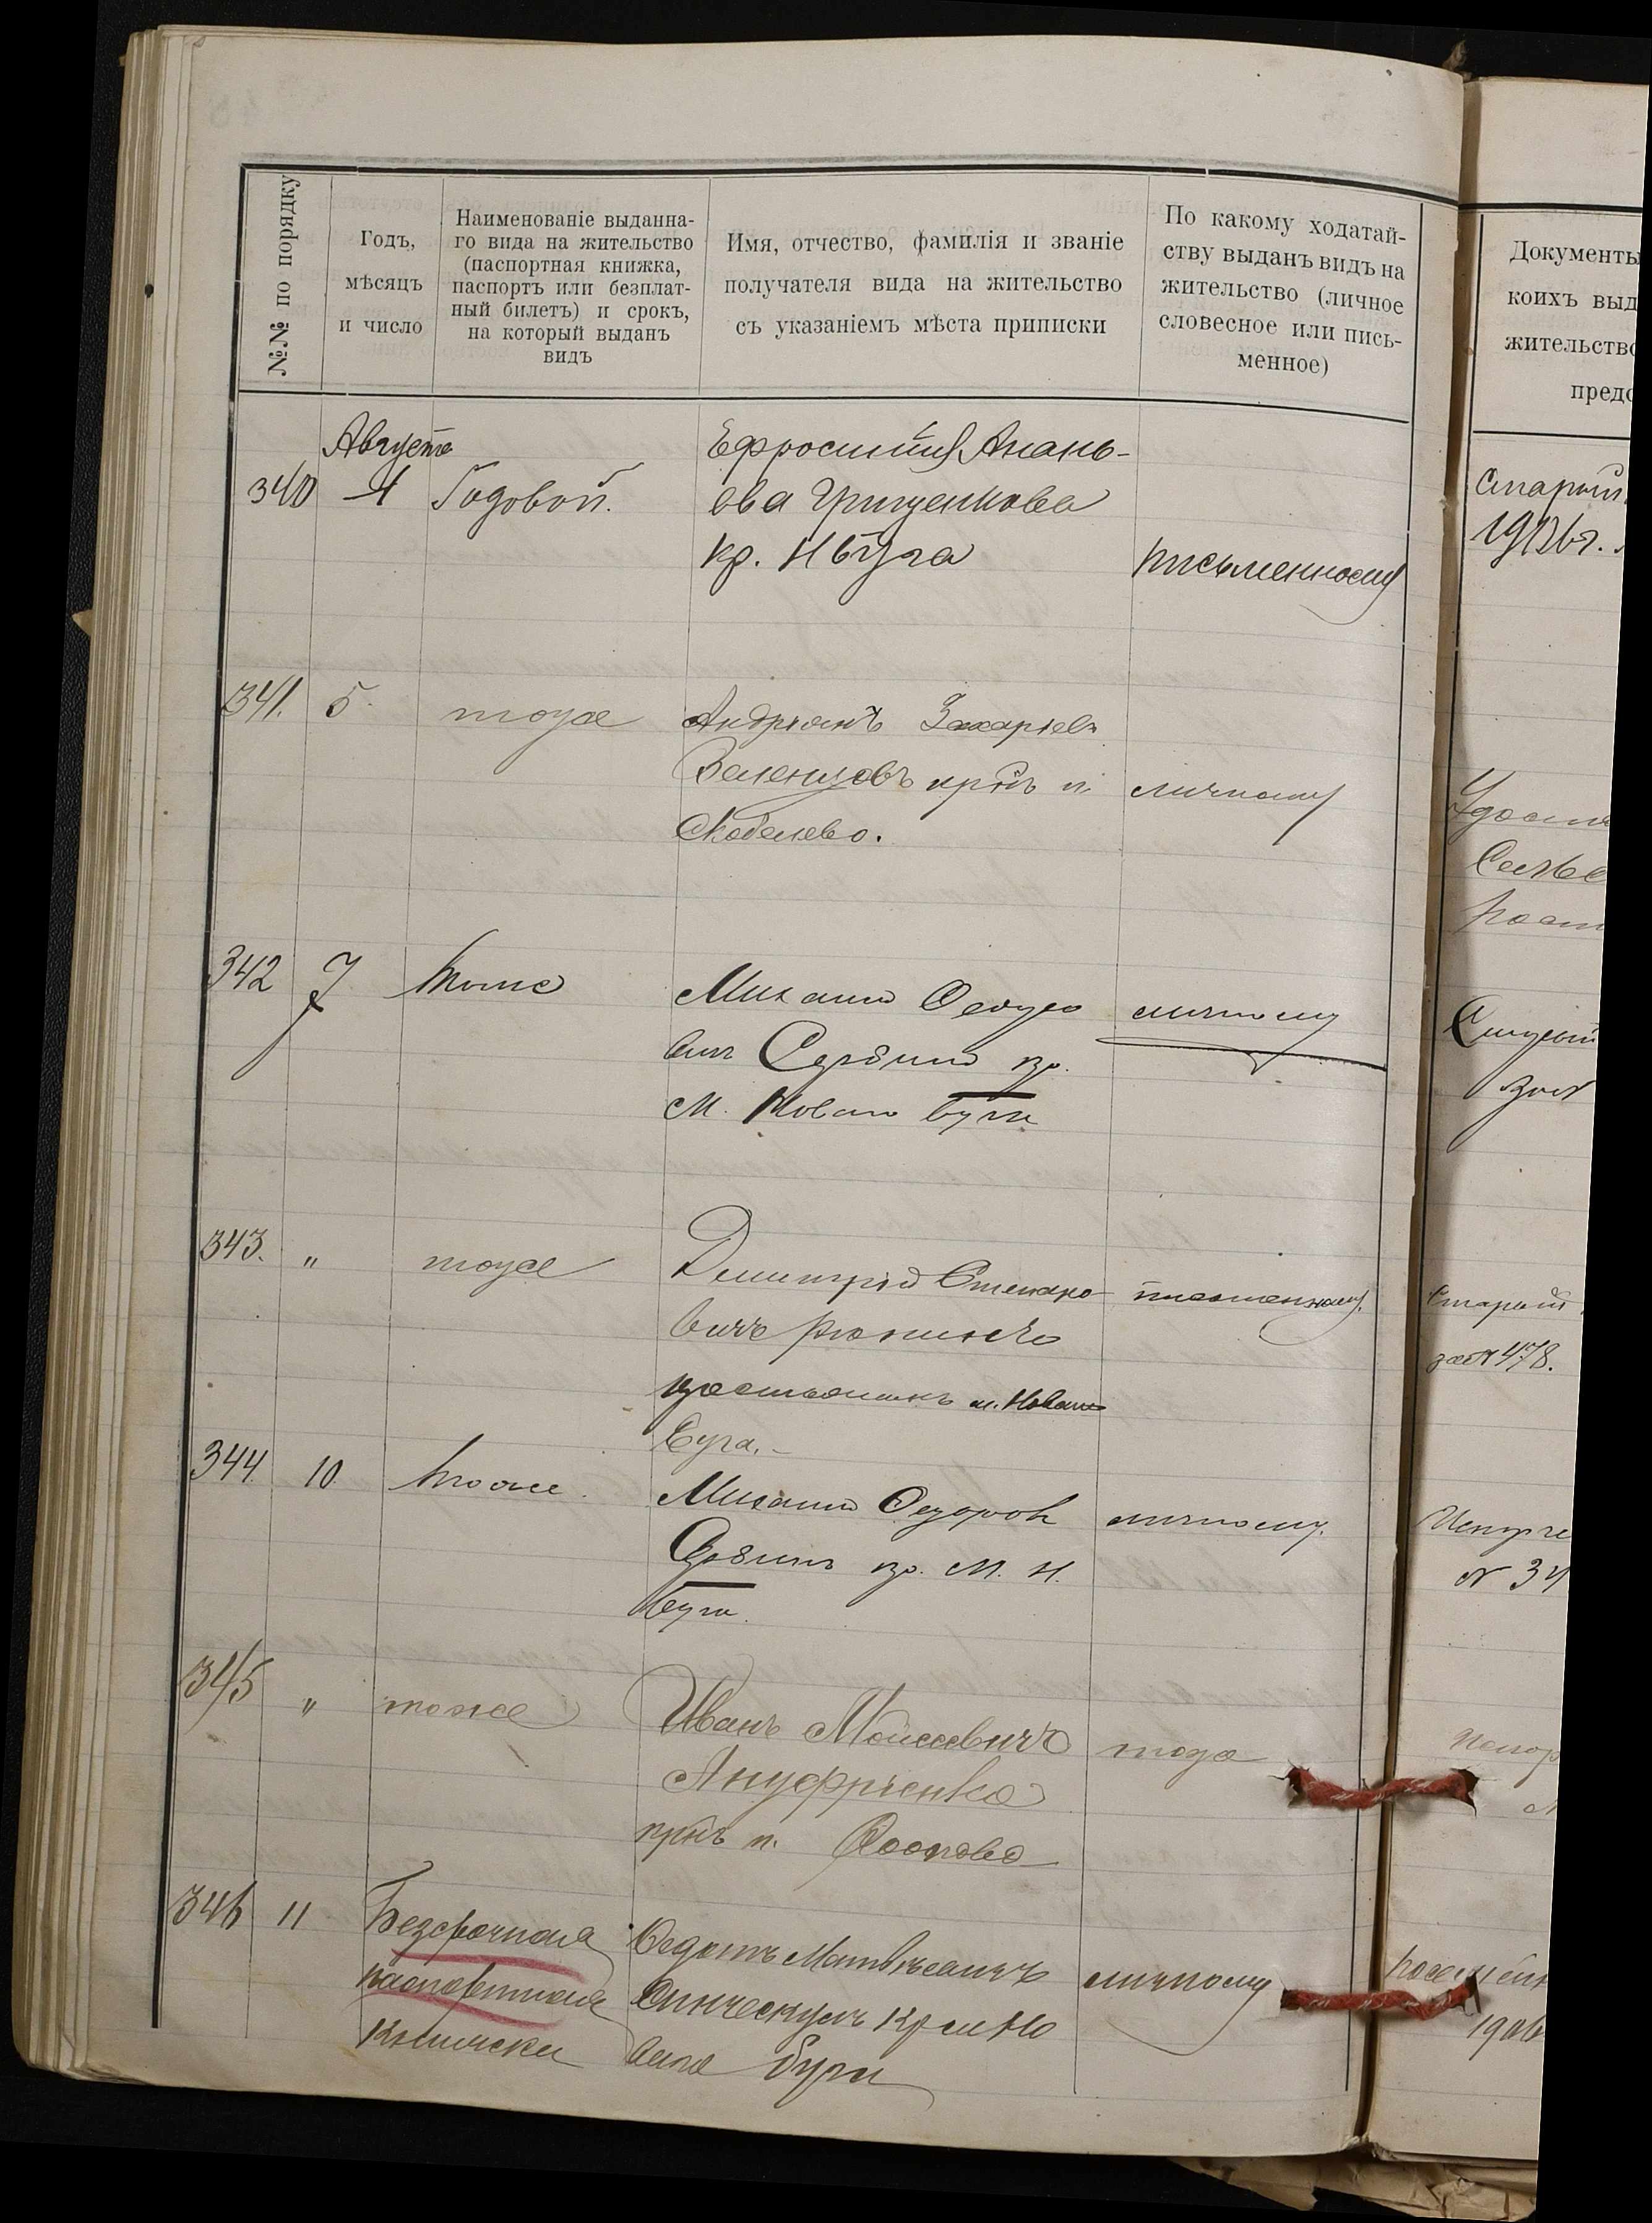 №№ по порядку
Годъ,
мѣсяцъ
и число
Наименованіе выданна-
го вида на жительство
(паспортная книжка,
паспортъ или безплат-
ный билетъ) и срокъ,
на который выданъ
видъ
Имя, отчество, фамилія и званіе
получателя вида на жительство
съ указаніемъ мѣста приписки
По какому ходатай-
ству выданъ видъ на
жительство (личное
словесное или пись-
менное)
Документы
коихъ выд
жительство
предс
Августа
340 4 Годовой.
Ефросинія Анань-
ева Грищенкова
кр. Н буга
письменному
Старый
341. 5 тоже
Андріанъ Захаріев
Зеленцовъ крнъ п.
Скобелево.
личному
342 7 Тоже
Михаил Федоро
вич кр.
м. Новаго Буга
личному
343. " тоже
Димитрій Степано
вичъ
крестьянинъ м. Новаго
Буга.-
письменному.
Старый
за № 478.
344 10 Тоже.
Михаил Федоров
кр. М. Н.
Буга.
личному.
№ 34
345 " тоже
Иванъ Моисеевичъ
Ануфріенко
крнъ п.
тоже
346 11 Безсрочная
паспортная
книжка
Федотъ Матвѣевичъ
кр м Но
ваго Буга
личному
1906